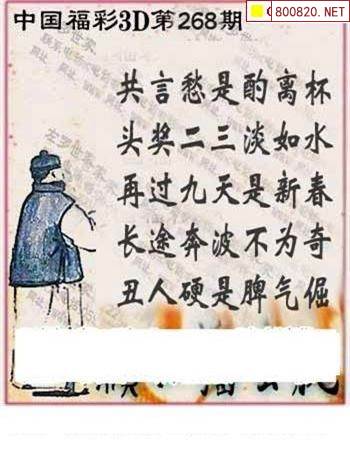 800820.NET
中国福彩3D第268期
共言愁是酌离杯
头奖二三淡如水
再过九天是新春
长途奔波不为奇
丑人硬是脾气倔